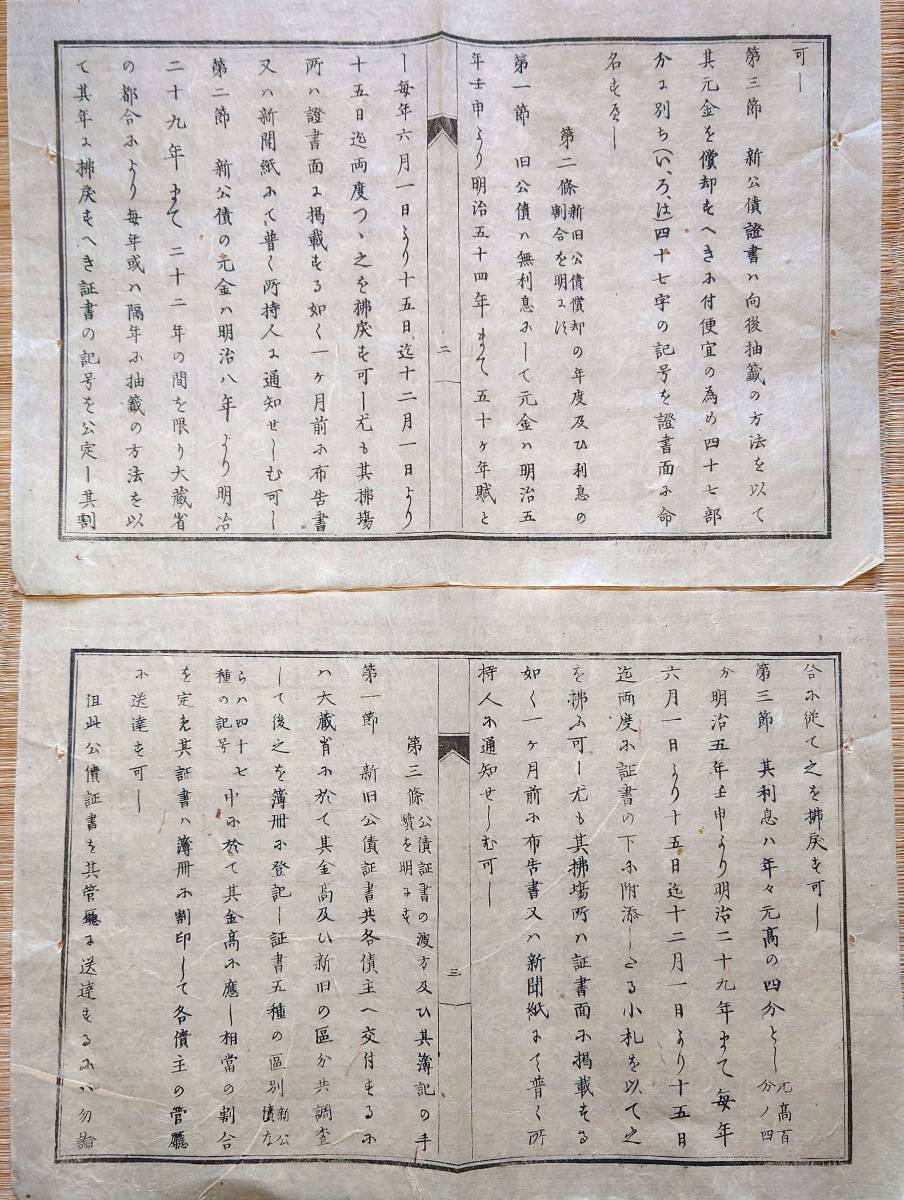 可し
第三節 新公債證書ハ向後抽籤の方法を以て
其元金を償却すへきに付便宜の為め四十七部
分に別ち(い、ろ、は)四十七字の記号を證書面に命
名すへし
第二條 新旧公債償却の年度及ひ利息の
割合を明にす
第一節 旧公債ハ無利息にして元金ハ明治五
年壬申より明治五十四年まて五十ヶ年賦と
二
し毎年六月一日より十五日迄十二月一日より
十五日迄両度つゝ之を拂戻す可し尤も其拂場
所ハ證書面に掲載する如く一ヶ月前に布告書
又ハ新聞紙にて普く所持人に通知せしむ可し
第二節 新公債の元金ハ明治八年より明治
二十九年まて二十二年の間を限り大蔵省
の都合により毎年或ハ隔年に抽籤の方法を以
て其年に拂戻すへき証書の記号を公定し其割
合に従て之を拂戻す可し
第三節 其利息ハ年々元高の四分とし 元高百
分ノ四
分明治五年壬申より明治二十九年まて毎年
六月一日より十五日迄十二月一日より十五日
迄両度に証書の下に附添したる小札を以て之
を拂ふ可し尤も其拂場所ハ証書面に掲載する
如く一ヶ月前に布告書又ハ新聞紙にて普く所
持人に通知せしむ可し
三
第三條 公債証書の渡方及ひ其簿記の手
續を明にす
第一節 新旧公債証書共各債主へ交付するに
ハ大蔵省に於て其金高及ひ新旧の區分共調査
して後之を簿冊に登記し証書五種の區別 新公
債な
らハ四十七
種の記号 中に於て其金高に應し相當の割合
を定め其証書ハ簿冊に割印して各債主の管廳
に送達す可し
但此公債証書を其管廳に送達するにハ勿論